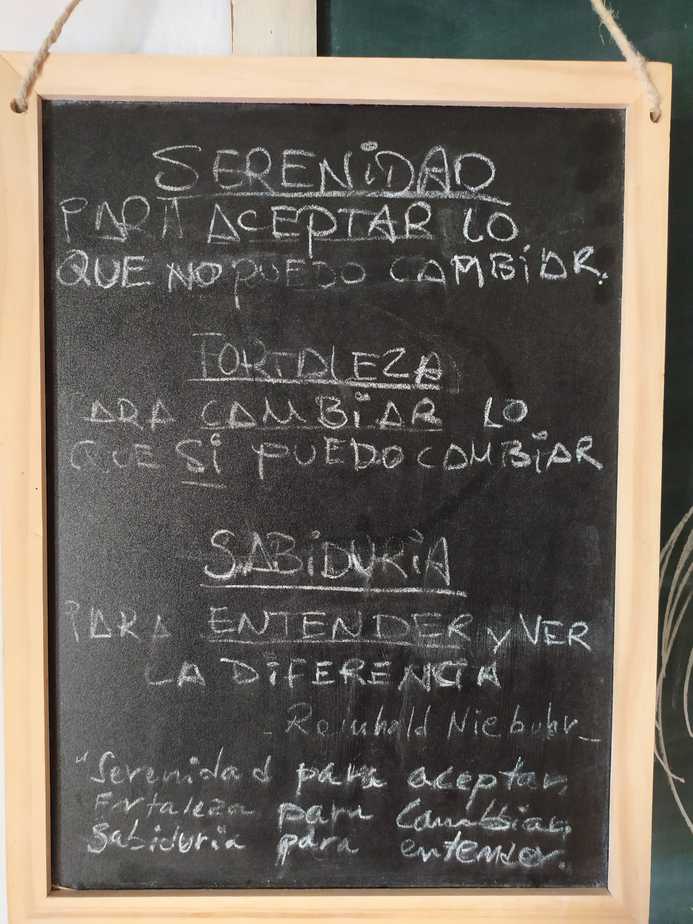 SERENIDAD
PARA ACEPTAR LO
QUE NO PUEDO CAMBIAR.
FORTALEZA
ARA CAMBIAR LO
QUE SI PUEDO CAMBIAR
SABIDURIA
PARA ENTENDER y VER
LA DIFERENCIA
- Reinhold Niebuhr -
"Serenidad para aceptar,
Fortaleza para Cambiar,
Sabiduria para entender.